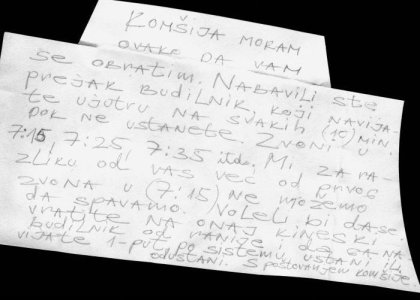 KOMŠIJA MORAM
OVAKO DA VAM
SE OBRATIM. NABAVILI STE
PREJAK BUDILNIK, KOJI NAVIJA-
TE UJUTRU NA SVAKIH (10) MIN.
DOK NE USTANETE. ZVONI U
7:15, 7:25, 7:35 itd. MI ZA RA-
ZLIKU OD VAS VEĆ OD PRVOG
ZVONA U (7:15) NE MOŽEMO
DA SPAVAMO. VOLELI BI DA SE
VRATITE NA ONAJ KINESKI
BUDILNIK OD RANIJE I DA GA NA-
VIJATE 1-PUT, PO SISTEMU, USTANI ILI
ODUSTANI. S POŠTOVANJEM KOMŠIJE